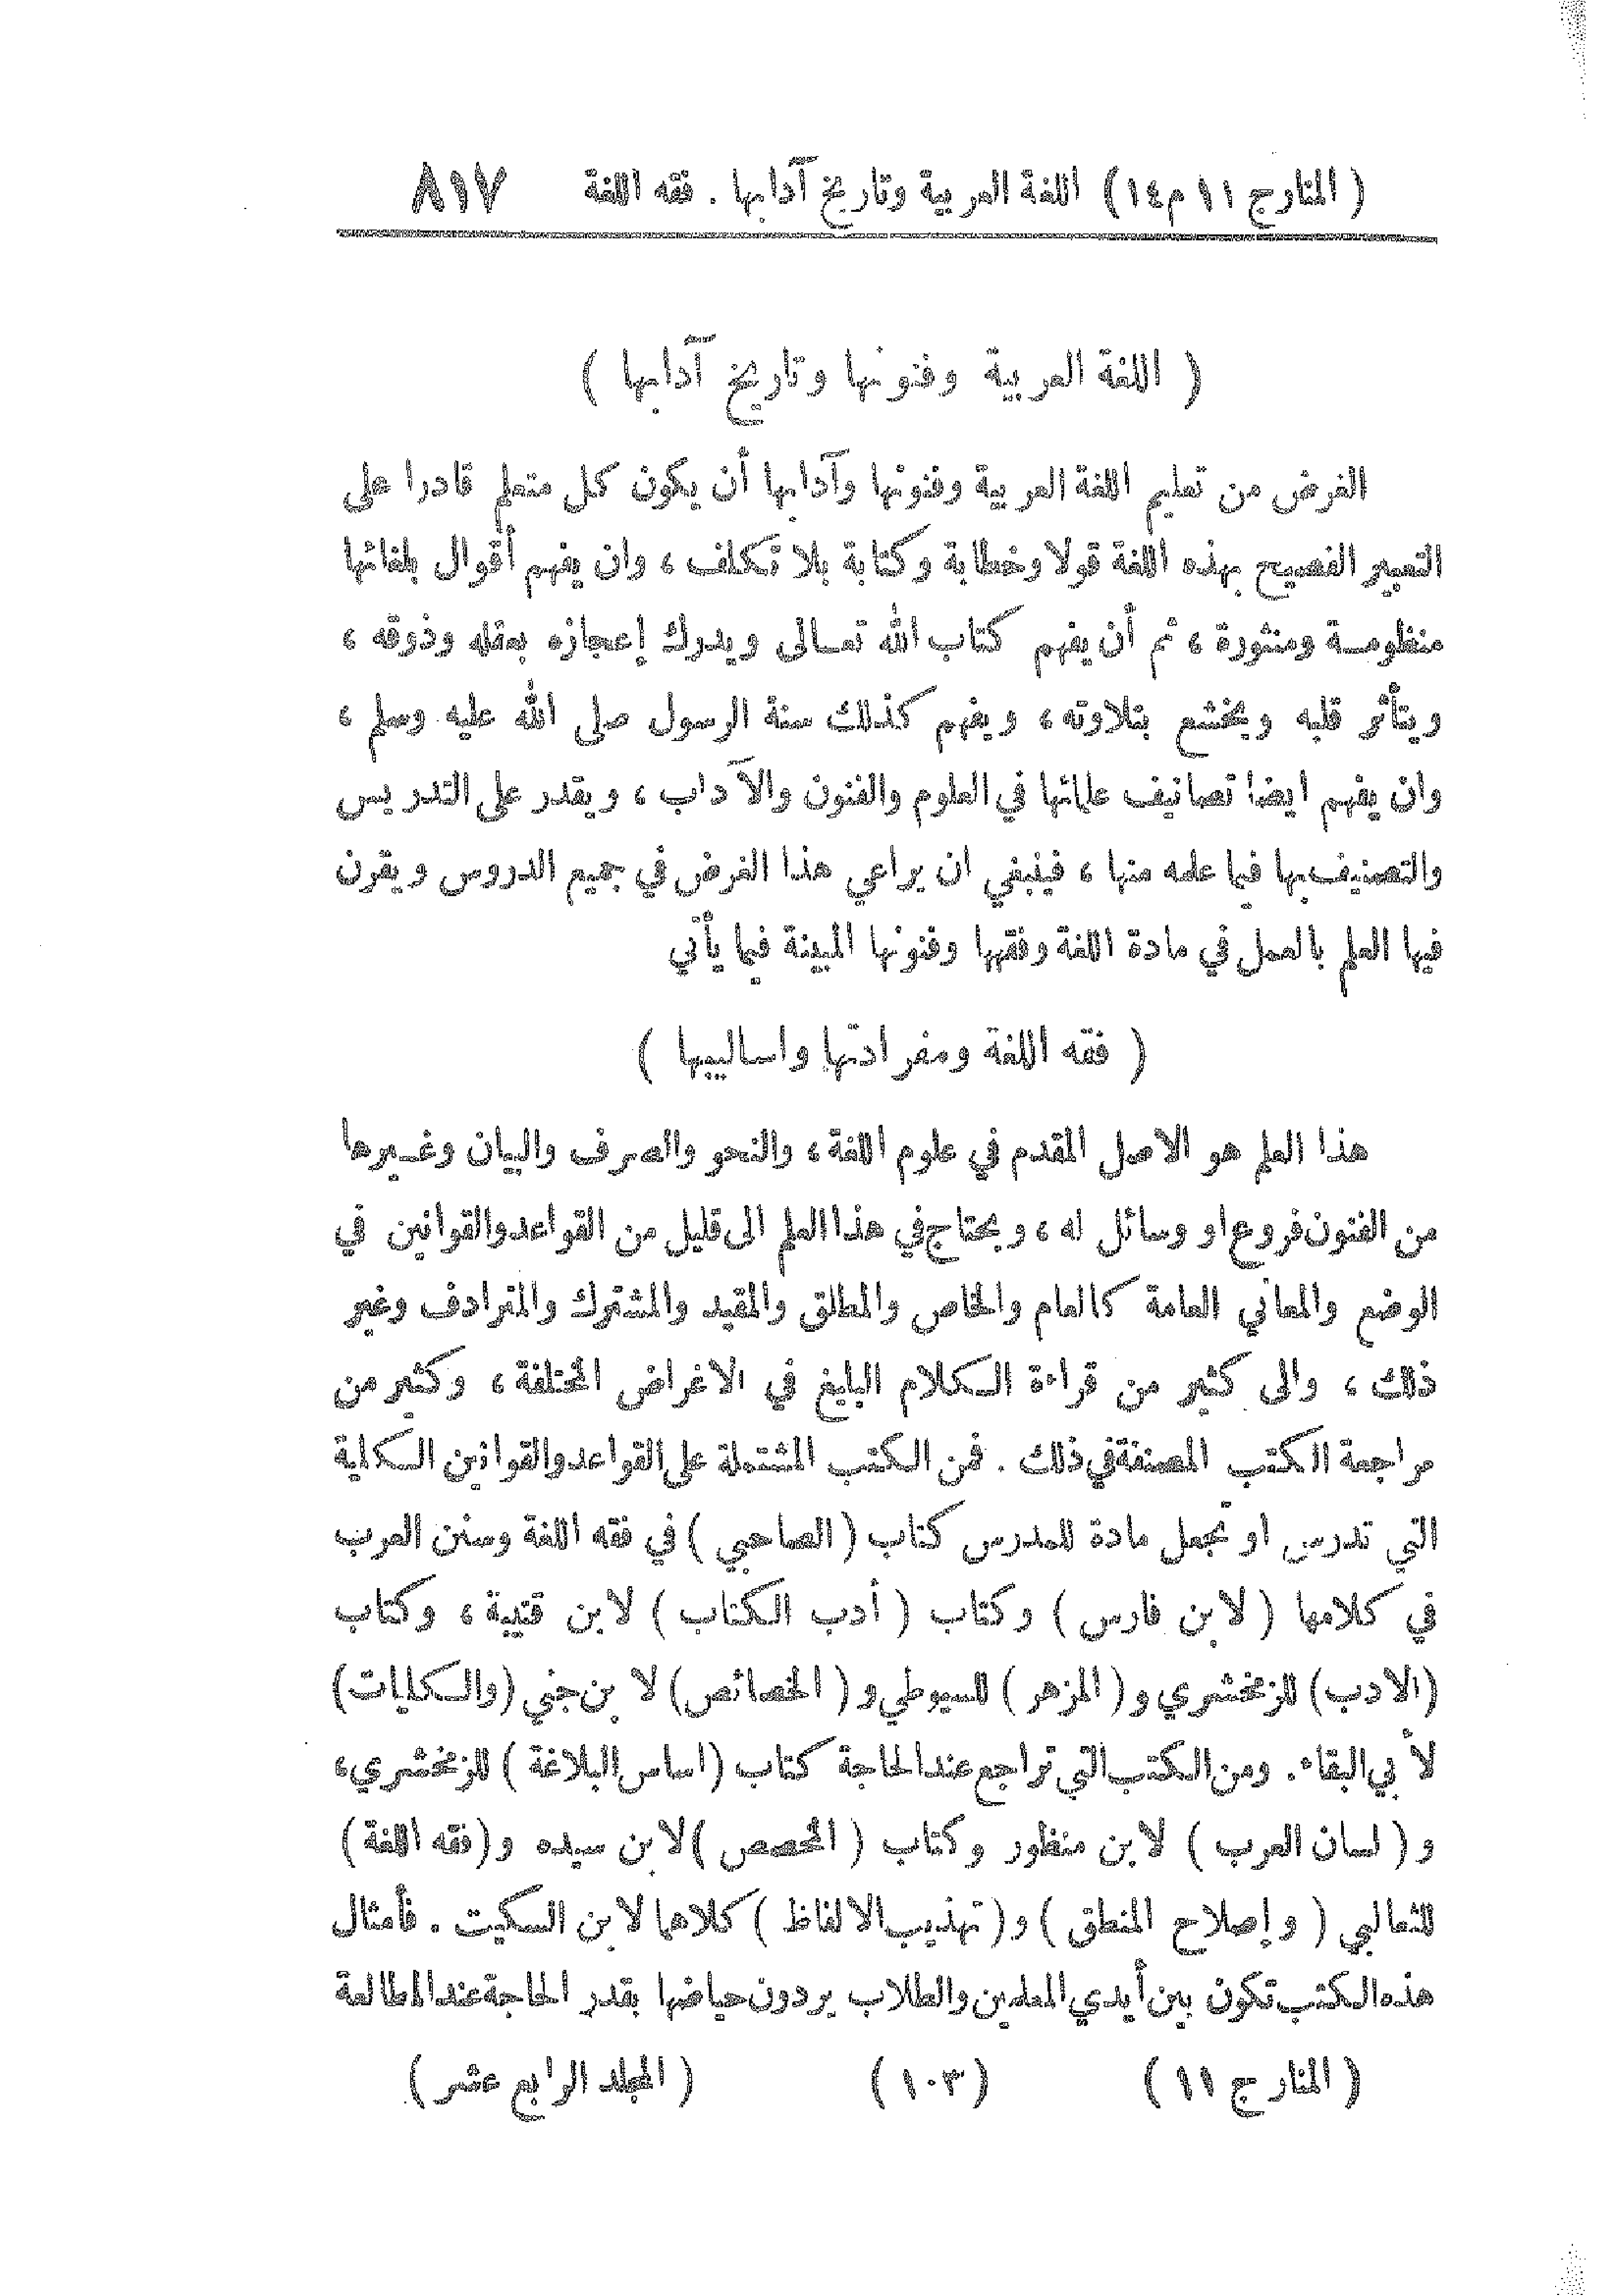 ( المنار ج ١١ م ١٤ ) اللغة العربية وتاريخ آدابها . فقه اللغة ٨١٧
( اللغة العربية وفنونها وتاريخ آدابها )
الغرض من تعليم اللغة العربية وفنونها وآدابها أن يكون كل متعلم قادرا على
التعبير الفصيح بهذه اللغة قولا وخطابة وكتابة بلا تكلف ، وان يفهم أقوال بلغائها
منظومة ومنثورة ، ثم أن يفهم كتاب الله تعالى ويدرك إعجازه بعقله وذوقه ،
ويتأثر قلبه ويخشع بتلاوته ، ويفهم كذلك سنة الرسول صلى الله عليه وسلم ،
وان يفهم ايضا تصانيف علمائها في العلوم والفنون والآداب ، ويقدر على التدريس
والتصنيف بها فيما علمه منها ، فينبغي ان يراعي هذا الغرض في جميع الدروس ويقرن
فيها العلم بالعمل في مادة اللغة وفقهها وفنونها المبينة فيما يأتي
( فقه اللغة ومفرادتها واساليبها )
هذا العلم هو الاصل المقدم في علوم اللغة ، والنحو والصرف والبيان وغيرها
من الفنون فروع او وسائل له ، ويحتاج في هذا العلم الى قليل من القواعد والقوانين في
الوضع والمعاني العامة كالعام والخاص والمطلق والمقيد والمشترك والمترادف وغير
ذلك ، والى كثير من قراءة الكلام البليغ في الاغراض المختلفة ، وكثير من
مراجعة الكتب المصنفة في ذلك . فمن الكتب المشتملة على القواعد والقوانين الكلية
التي تدرس او تجعل مادة للمدرس كتاب ( الصاحبي ) في فقه اللغة وسنن العرب
في كلامها ( لابن فارس ) وكتاب ( أدب الكتاب ) لابن قتيبة ، وكتاب
(الادب) للزمخشري و ( المزهر ) للسيوطي و ( الخصائص) لابن جني (والكليات)
لأبي البقاء . ومن الكتب التي تراجع عند الحاجة كتاب (اساس البلاغة ) للزمخشري ،
و ( لسان العرب ) لابن منظور وكتاب ( المخصص ) لابن سيده و (فقه اللغة)
للثعالبي ( وإصلاح المنطق ) و ( تهذيب الالفاظ ) كلاهما لابن السكيت . فأمثال
هذه الكتب تكون بين أيدي المعلمين والطلاب يردون حياضها بقدر الحاجة عند المطالعة
( المنار ج ١١ ) ( ١٠٣ ) ( المجلد الرابع عشر )